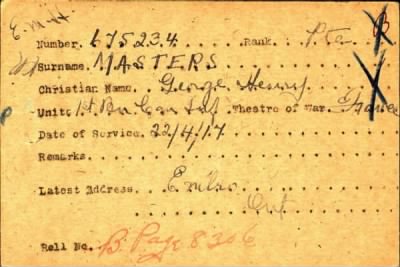 E.M.H.
Number. 675234. Rank. Pte
Surname. MASTERS
Christian Name. George Henry
Unit. 1st Bn Can Inf. Theatre of War. France
Date of Service. 22/4/17.
Remarks.
Latest Address. Embro
Ont
Roll No. B. Page 8306